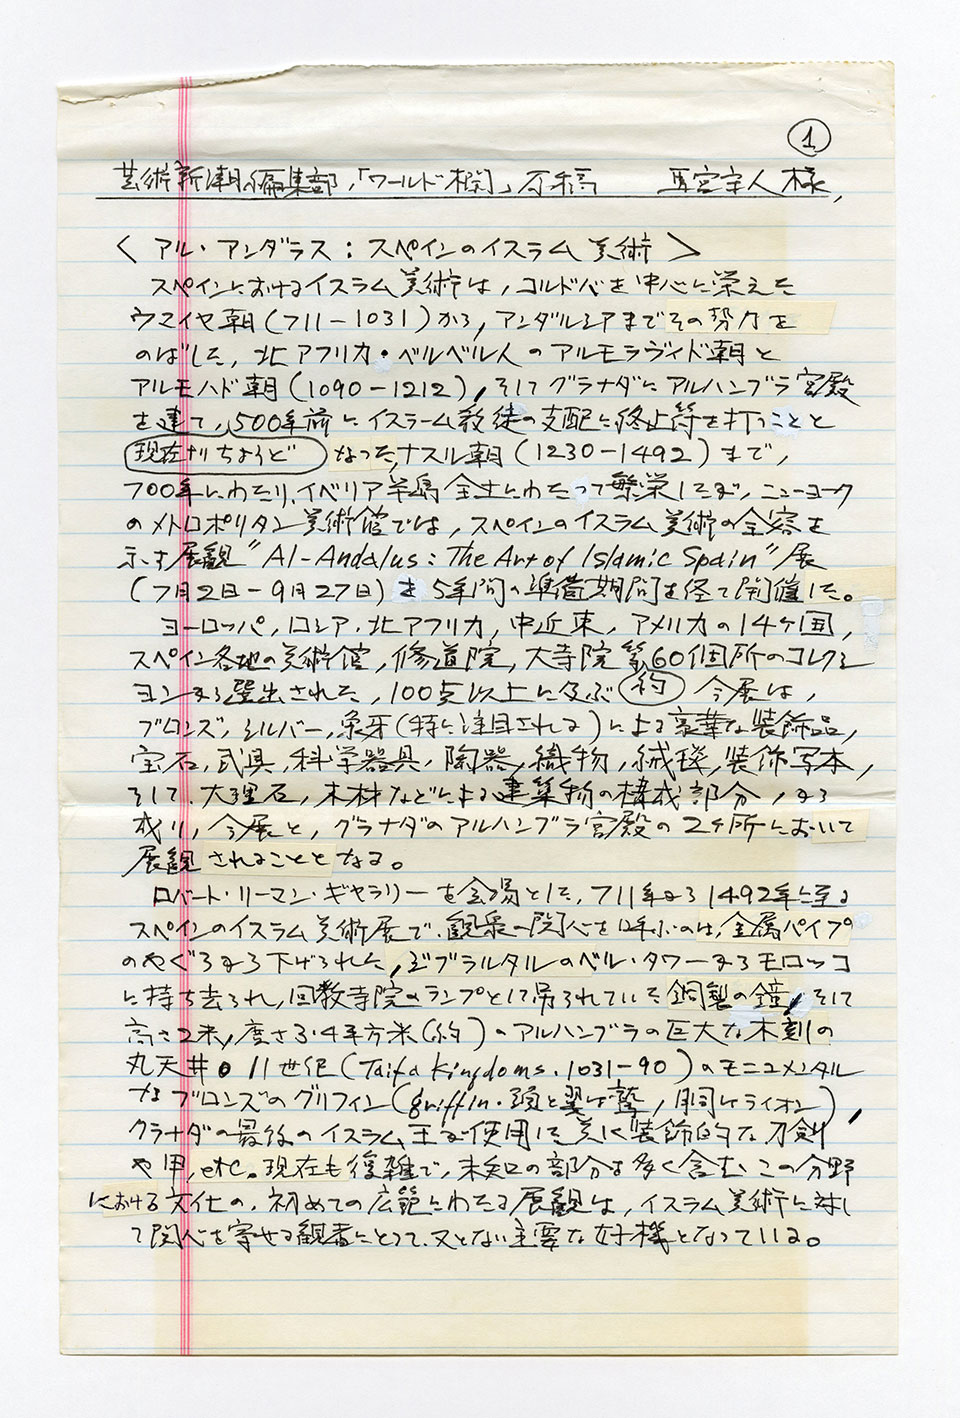 1
芸術新潮編集部,「ワールド欄」原稿 馬宮宇人様,
〈アル・アンダラス:スペインのイスラム美術〉
スペインにおけるイスラム美術は,コルドバを中心に栄えた
ウマイヤ朝(711-1031)から,アンダルシアまでその勢力を
のばした,北アフリカ・ベルベル人のアルモラヴィド朝と
アルモハド朝(1090-1212),そしてグラナダにアルハンブラ宮殿
を建て,500年前にイスラーム教徒の支配に終止符を打つことと
現在からちょうど なった,ナスル朝(1230-1492)まで,
700年にわたり,イベリア半島全土にわたって繁栄したが,ニューヨーク
のメトロポリタン美術館では,スペインのイスラム美術の全容を
示す展観"Al-Andalus:The Art of Islamic Spain"展
(7月2日-9月27日)を5年間の準備期間を経て開催した。
ヨーロッパ,ロシア,北アフリカ,中近東,アメリカの14ヶ国,
スペイン各地の美術館,修道院,大寺院等,60個所のコレクシ
ョンから選出された,100点以上に及ぶ 約 今展は,
ブロンズ,シルバー,象牙(特に注目される)による豪華な装飾品,
宝石,武具,科学器具,陶器,織物,絨毯,装飾写本,
そして,大理石,木材などによる建築物の構成部分,から
成り,今展と,グラナダのアルハンブラ宮殿の2ヶ所において
展観されることとなる。
ロバート・リーマン・ギャラリーを会場とした,711年から1492年に至る
スペインのイスラム美術展で,観衆の関心を呼ぶのは,金属パイプ
のやぐらから下げられた,ジブラルタルのベル・タワーからモロッコ
に持ち去られ,回教寺院のランプとして吊られていた銅製の鐘,そして
高さ2米,広さ3.4平方米(約)のアルハンブラの巨大な木刻の
丸天井。11世紀(Taifa Kingdoms.1031-90)のモニュメンタル
なブロンズのグリフィン(griffin・頭と翼は鷲,胴はライオン),
グラナダの最後のイスラム王が使用した美しく装飾的な刀剣
や甲,etc。現在も複雑で,未知の部分を多く含む,この分野
における文化の,初めての広範にわたる展観は,イスラム美術に対し
て関心を寄せる観者にとって,又とない主要な好機となっている。